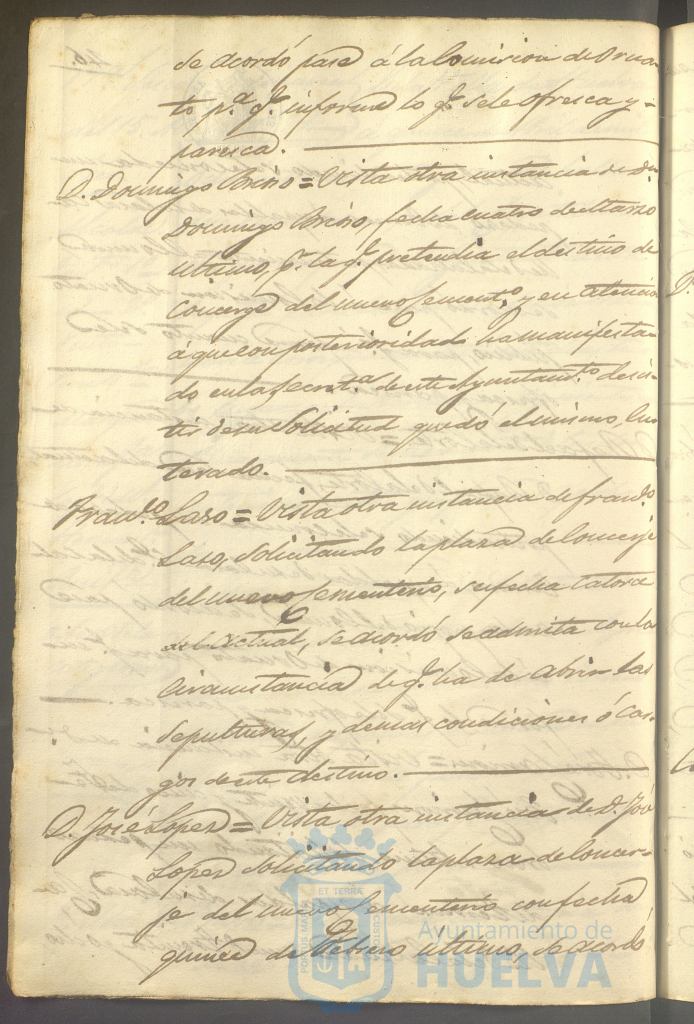 se acordó pase á la Comision de Orna-
to p.ª q.e informe lo q.e se le ofresca y
paresca.
D. Domingo Breso = Vista otra instancia de Dn
Domingo Breso, fecha cuatro de Marzo
ultimo, p.r la q.e pretendia el destino de
Concerge del nuevo Sement.o, y en atencion
á que con posterioridad ha manifesta-
do en la Secret.ª de este Ayuntam.to desis-
tir de su Solicitud quedó el mismo, En-
terado.
Fran.co Laso = Vista otra instancia de Fran.co
Laso, solicitando la plaza de Conserje
del nuevo Sementerio, su fecha catorce
del Actual, se acordó se admita con la
Circunstancia de q.e ha de abrir las
Sepulturas, y demas condiciones ó car-
gos de este destino.
D. José Lopez = Vista otra instancia de D. José
Lopez solicitando la plaza de Concer-
je del nuevo Sementerio con fecha
quince de Febrero ultimo, se acordó
ET TERRÆ
Ayuntamiento de
HUELVA